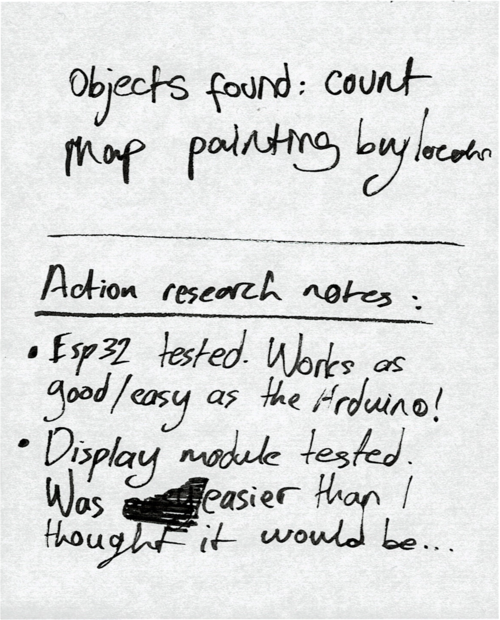 Objects found: count
Map painting by location
Action research notes:
• Esp32 tested. Works as
good/easy as the Arduino!
• Display module tested.
Was easier than I
thought it would be...